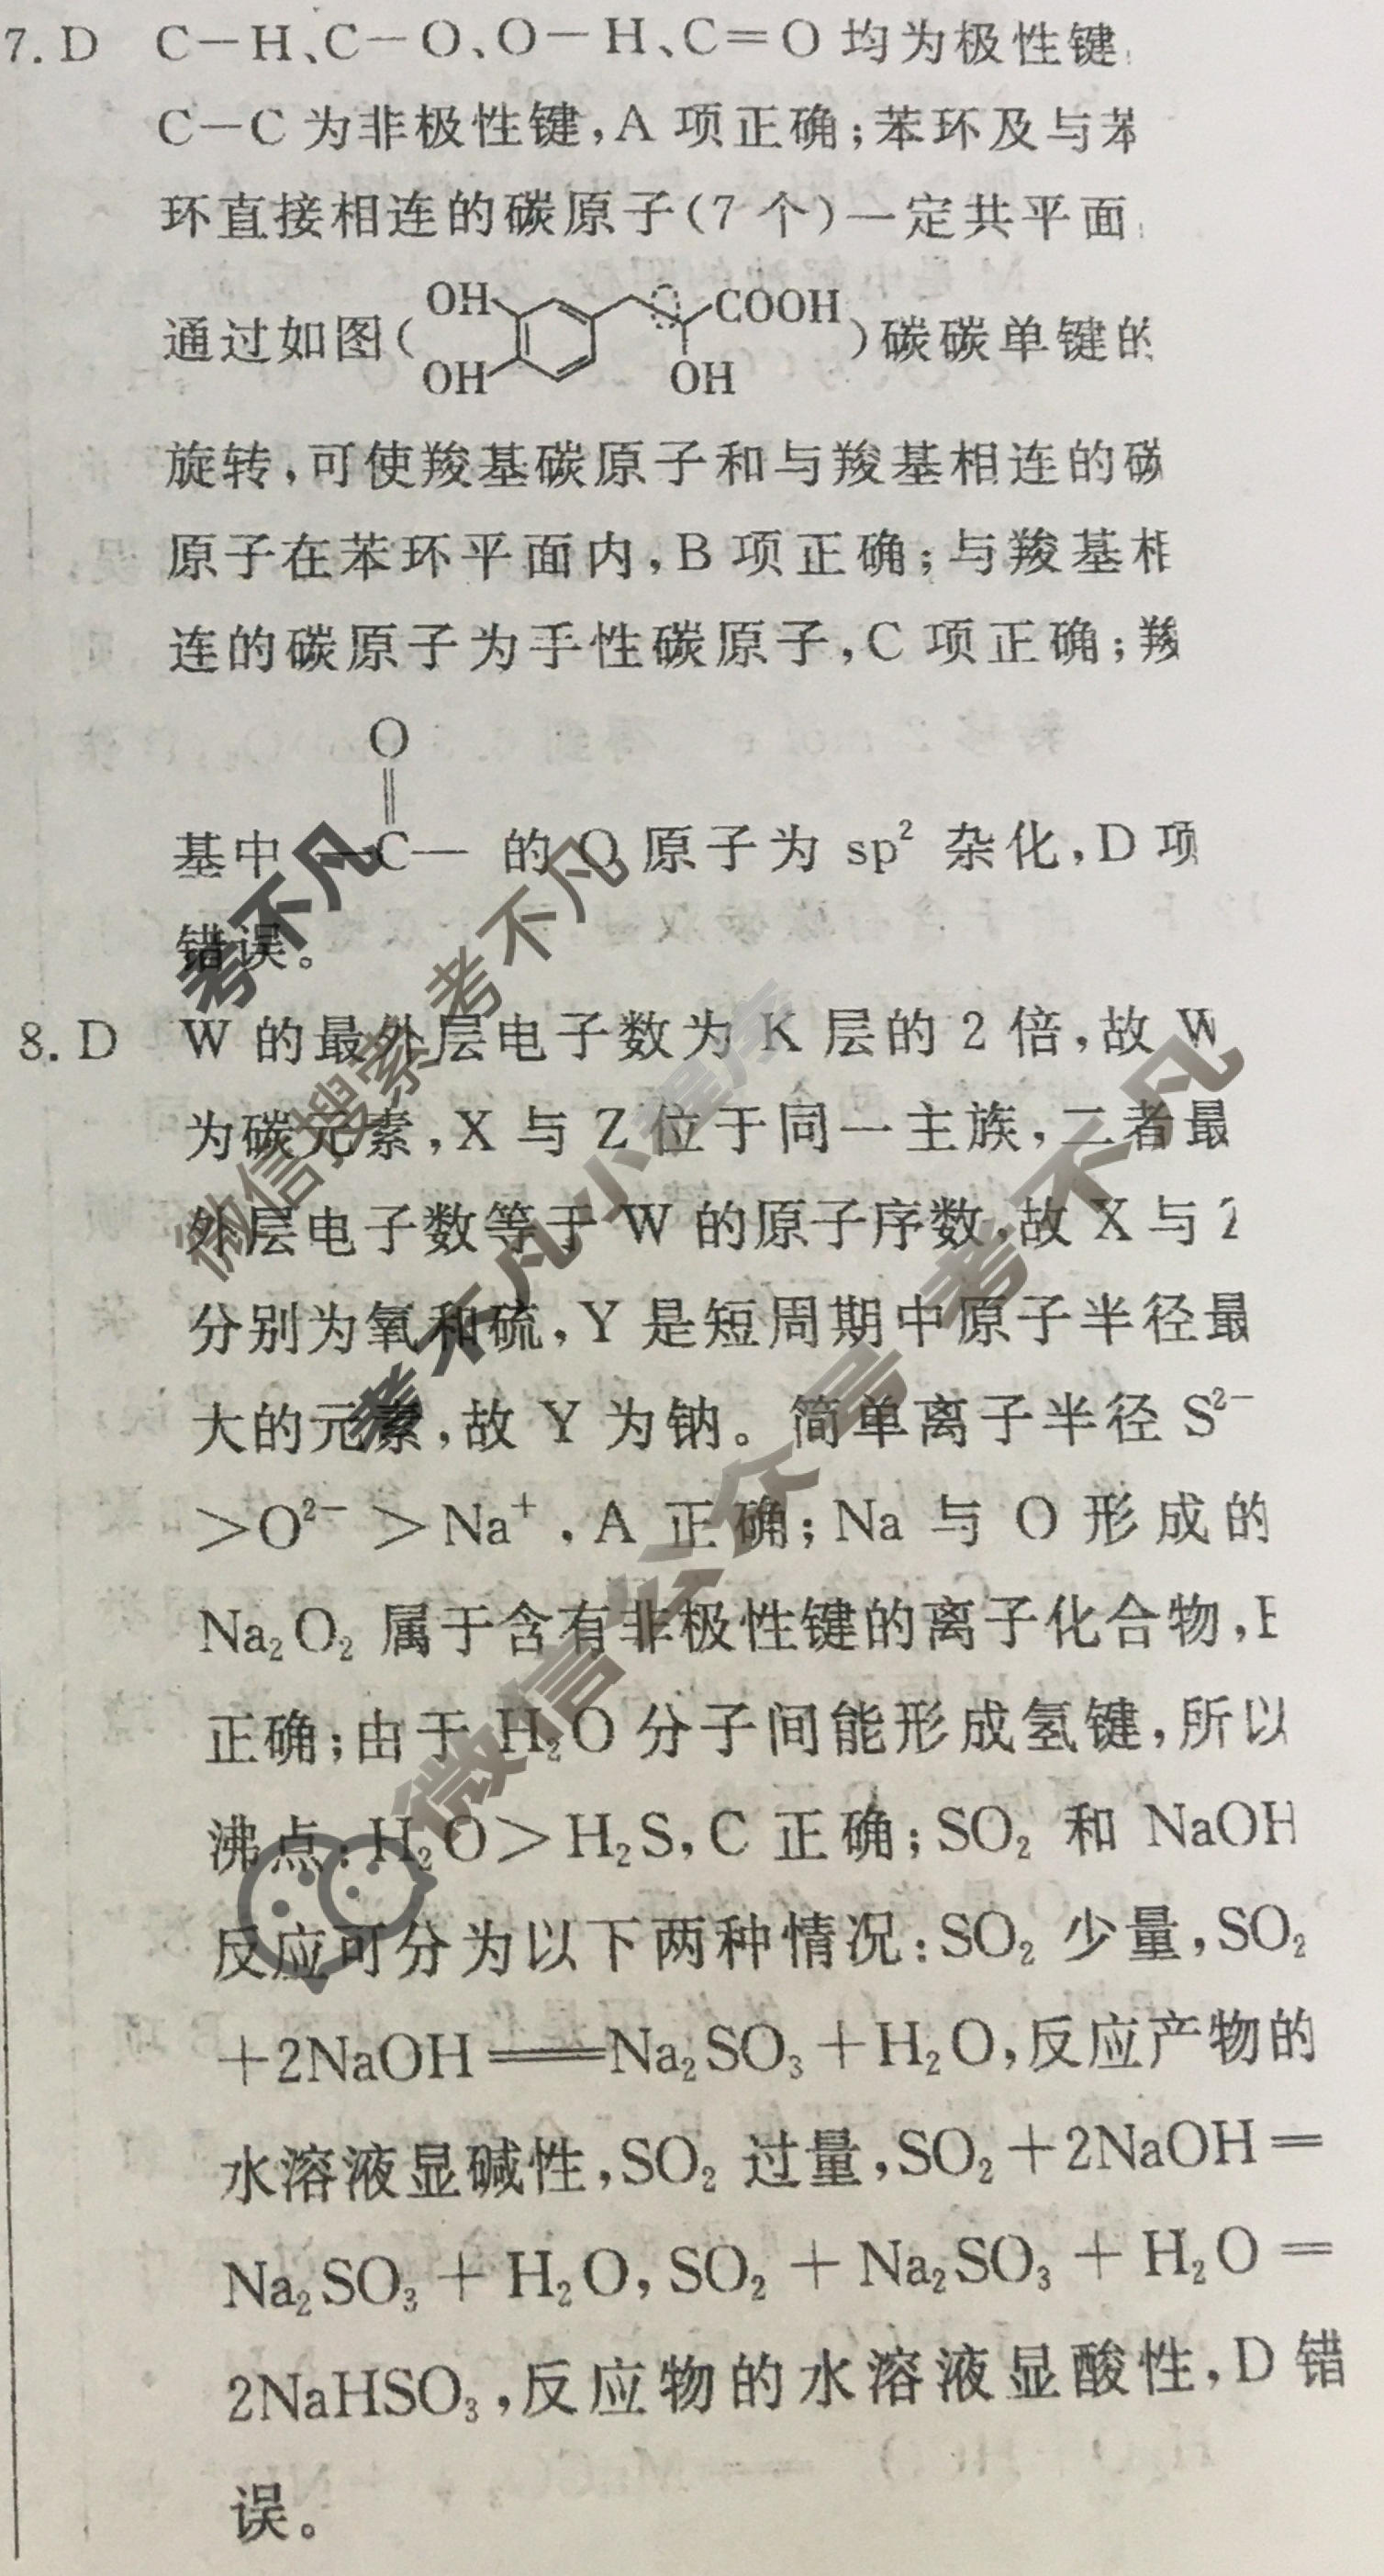 7. D C－H、C－O、O－H、C＝O 均为极性键
C－C 为非极性键,A 项正确;苯环及与苯
环直接相连的碳原子(7 个)一定共平面
OH
COOH
通过如图( )碳碳单键的
OH
OH
旋转,可使羧基碳原子和与羧基相连的碳
原子在苯环平面内,B 项正确;与羧基相
连的碳原子为手性碳原子,C 项正确;羧
O
基中 —C— 的 O 原子为 sp² 杂化,D 项
错误。
8. D W 的最外层电子数为 K 层的 2 倍,故 W
为碳元素,X 与 Z 位于同一主族,二者最
外层电子数等于 W 的原子序数,故 X 与
分别为氧和硫,Y 是短周期中原子半径最
大的元素,故 Y 为钠。简单离子半径 S²⁻
＞O²⁻ ＞Na⁺,A 正确;Na 与 O 形成的
Na₂O₂ 属于含有非极性键的离子化合物,
正确;由于 H₂O 分子间能形成氢键,所以
沸点:H₂O＞H₂S,C 正确;SO₂ 和 NaOH
反应可分为以下两种情况:SO₂ 少量,SO₂
＋2NaOH══Na₂SO₃＋H₂O,反应产物的
水溶液显碱性,SO₂ 过量,SO₂＋2NaOH＝
Na₂SO₃＋H₂O,SO₂＋Na₂SO₃＋H₂O＝
2NaHSO₃,反应物的水溶液显酸性,D 错
误。
考不凡
微信搜索 考不凡
考不凡小程序
微信公众号 考不凡